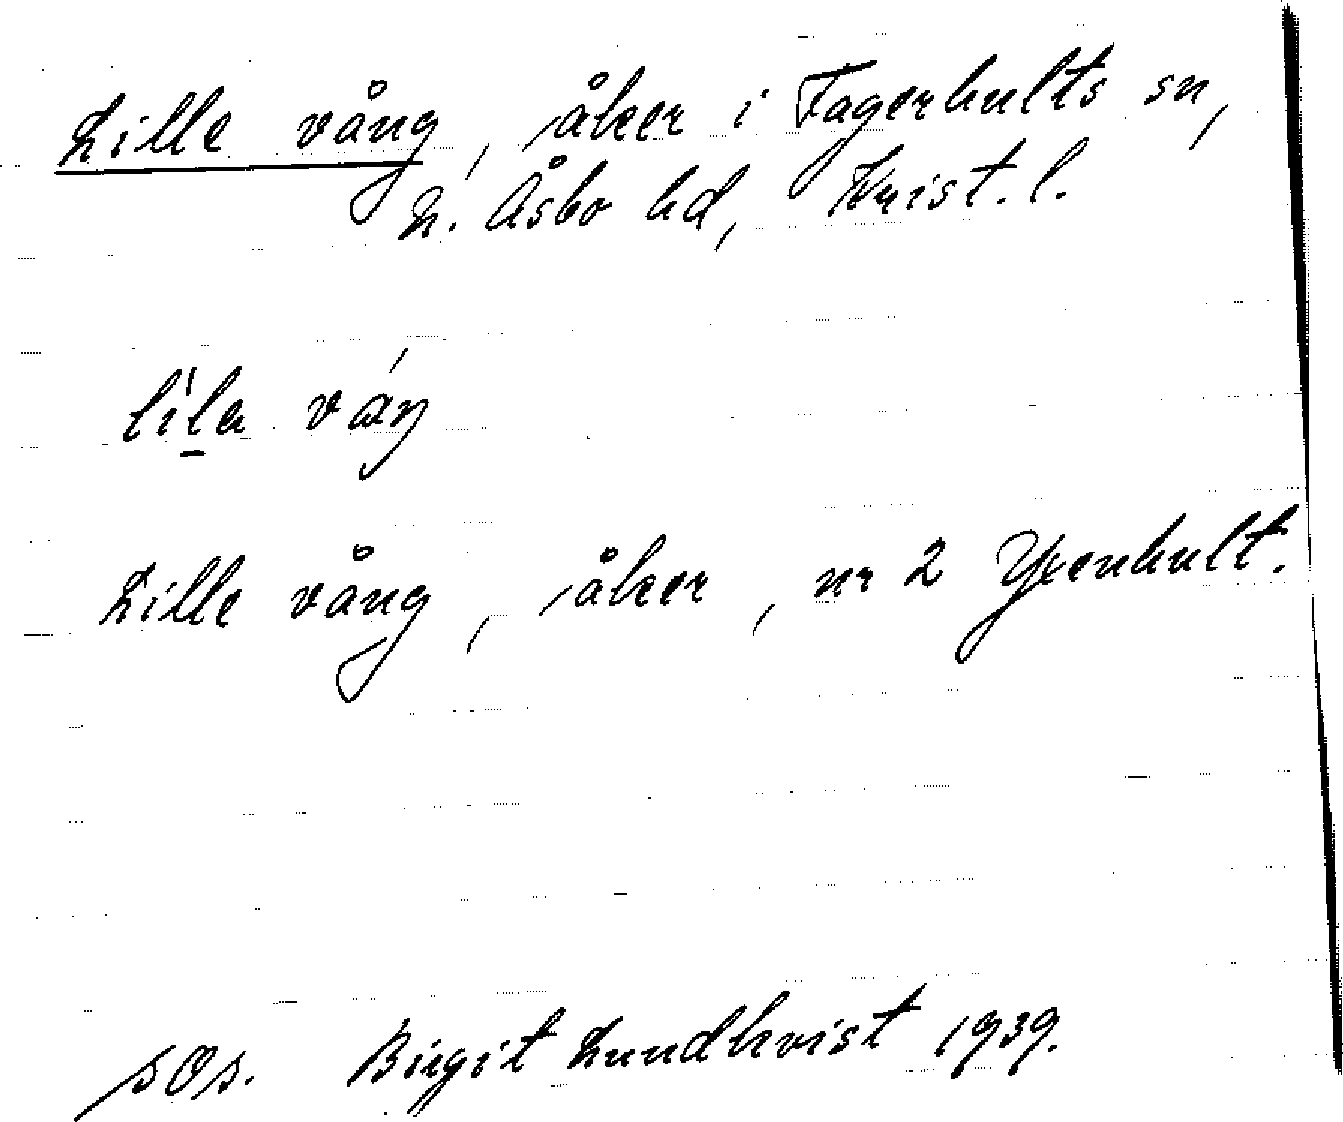 Lille vång, åker i Fagerhults sn,
N. Åsbo hd, Krist. l.
lila váŋ
Lille vång, åker, nr 2 Yxenhult.
SOS. Birgit Lundkvist 1939.